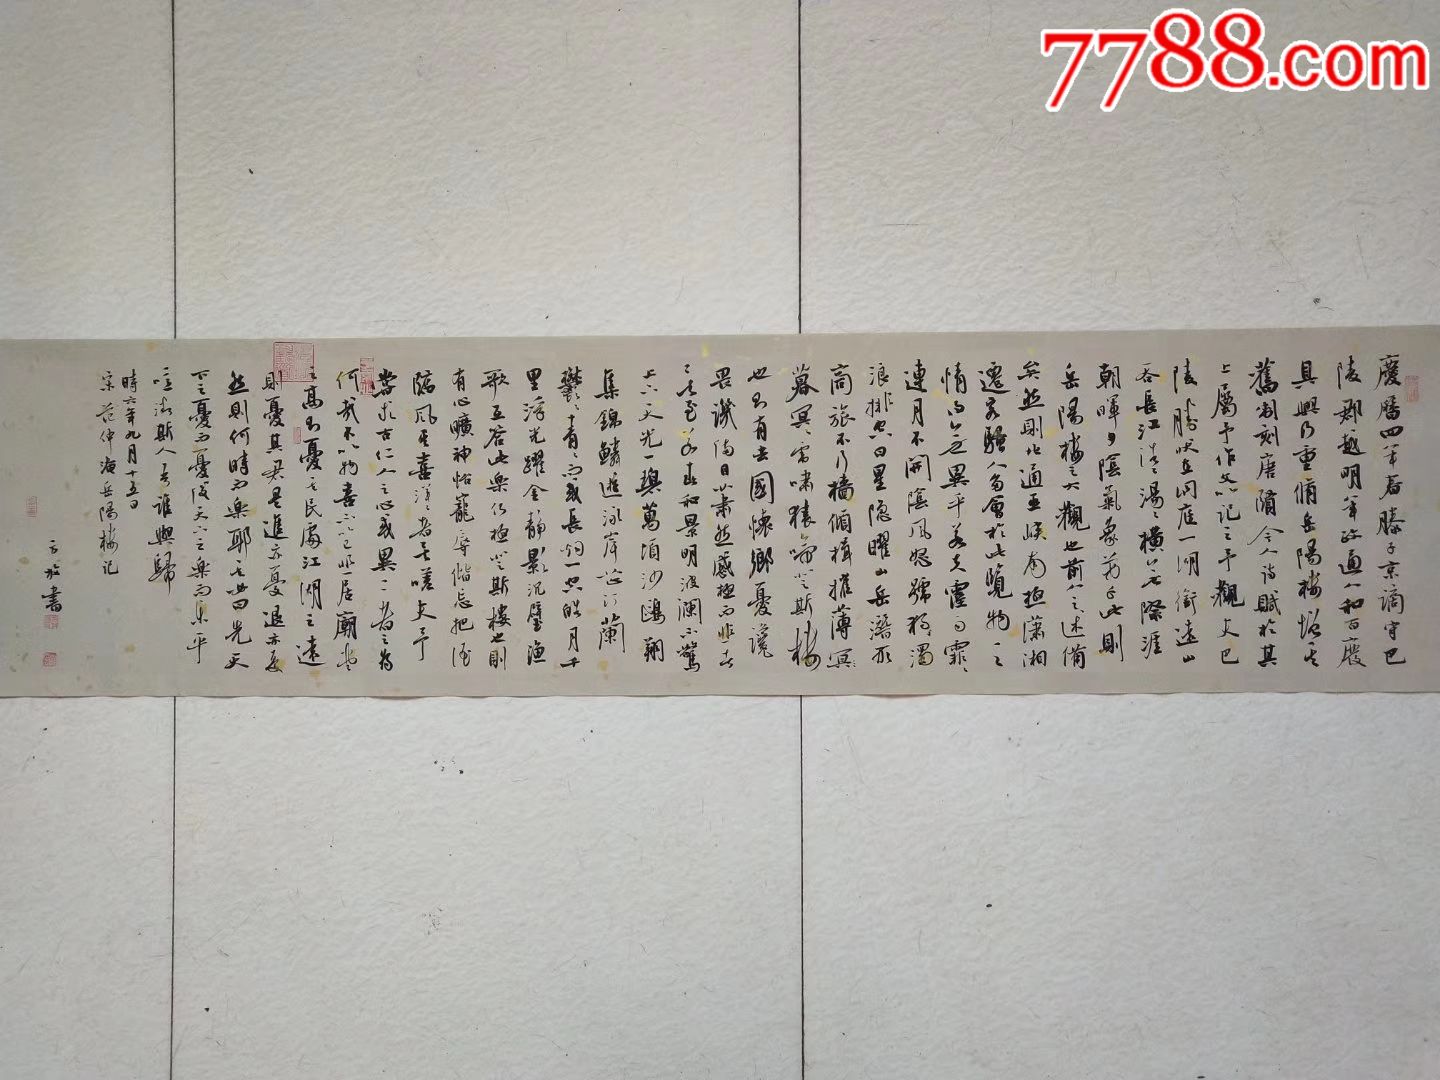 7788.com
慶曆四年春滕子京謫守巴
陵郡越明年政通人和百廢
具興乃重脩岳陽樓增其
舊制刻唐賢今人詩賦於其
上屬予作文以記之予觀夫巴
陵勝狀在洞庭一湖銜遠山
吞長江浩浩湯湯橫無際涯
朝暉夕陰氣象萬千此則
岳陽樓之大觀也前人之述備
矣然則北通巫峽南極瀟湘
遷客騷人多會於此覽物之
情得無異乎若夫霪雨霏霏
連月不開陰風怒號濁
浪排空日星隱曜山岳潛形
商旅不行檣傾楫摧薄暮冥
冥虎嘯猿啼登斯樓
也則有去國懷鄉憂讒
畏譏滿目蕭然感極而悲者
矣至若春和景明波瀾不驚
上下天光一碧萬頃沙鷗翔
集錦鱗游泳岸芷汀蘭
鬱鬱青青而或長煙一空皓月千
里浮光躍金靜影沉璧漁
歌互答此樂何極登斯樓也則
有心曠神怡寵辱偕忘把酒
臨風其喜洋洋者矣嗟夫予
嘗求古仁人之心或異二者之為
何哉不以物喜不以己悲居廟堂
之高則憂其民處江湖之遠
則憂其君是進亦憂退亦憂
然則何時而樂耶其必曰先天
下之憂而憂後天下之樂而樂乎
噫微斯人吾誰與歸
時六年九月十五日
宋范仲淹岳陽樓記
書